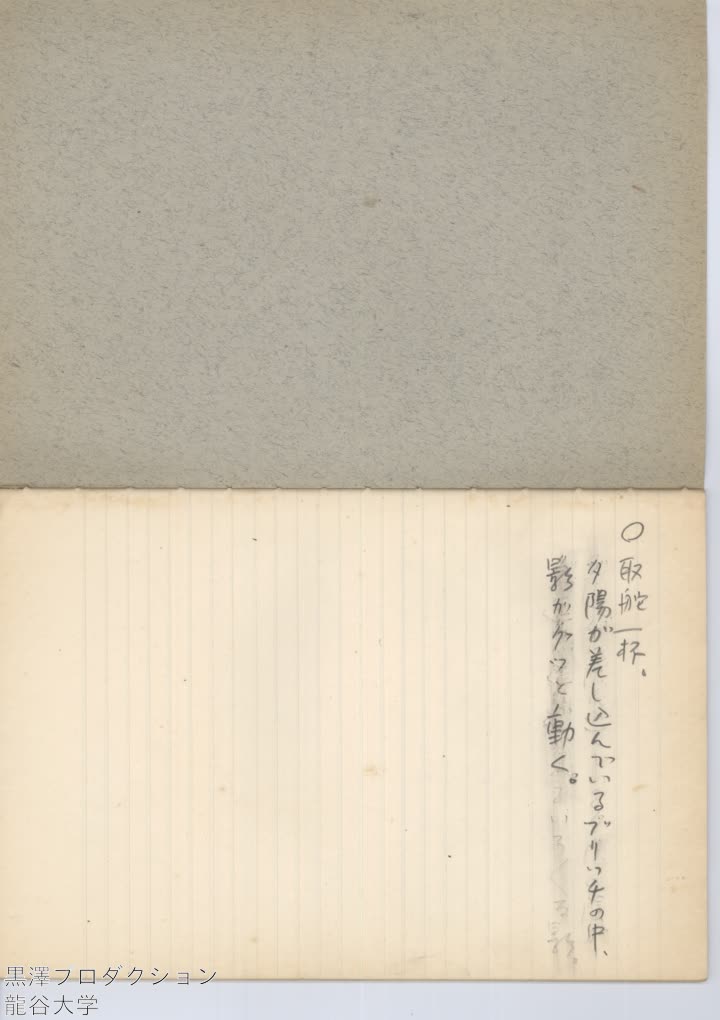 ○取舵一杯。
夕陽が差し込んでいるブリッヂの中、
影がグツと動く。
黒澤プロダクション
龍谷大学